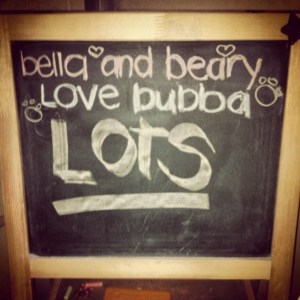 bella and beary
Love bubba
Lots